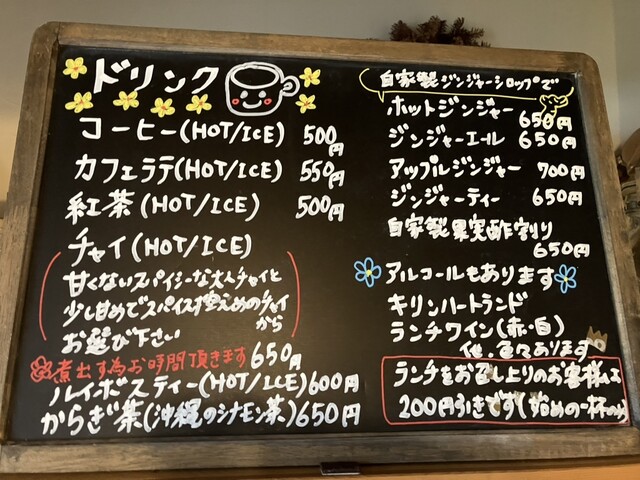 ドリンク
コーヒー(HOT/ICE) 500円
カフェラテ(HOT/ICE) 550円
紅茶(HOT/ICE) 500円
チャイ(HOT/ICE)
甘くないスパイシーな大人チャイと
少し甘めでスパイス控えめのチャイ
から
お選び下さい
煮出す為お時間頂きます 650円
ルイボスティー(HOT/ICE) 600円
からぎ茶(沖縄のシナモン茶) 650円
自家製ジンジャーシロップで
ホットジンジャー 650円
ジンジャーエール 650円
アップルジンジャー 700円
ジンジャーティー 650円
自家製果実酢割り
650円
アルコールもあります
キリンハートランド
ランチワイン(赤・白)
他、色々あります
ランチをお召し上りのお客様は
200円引きです(始めの一杯のみ)